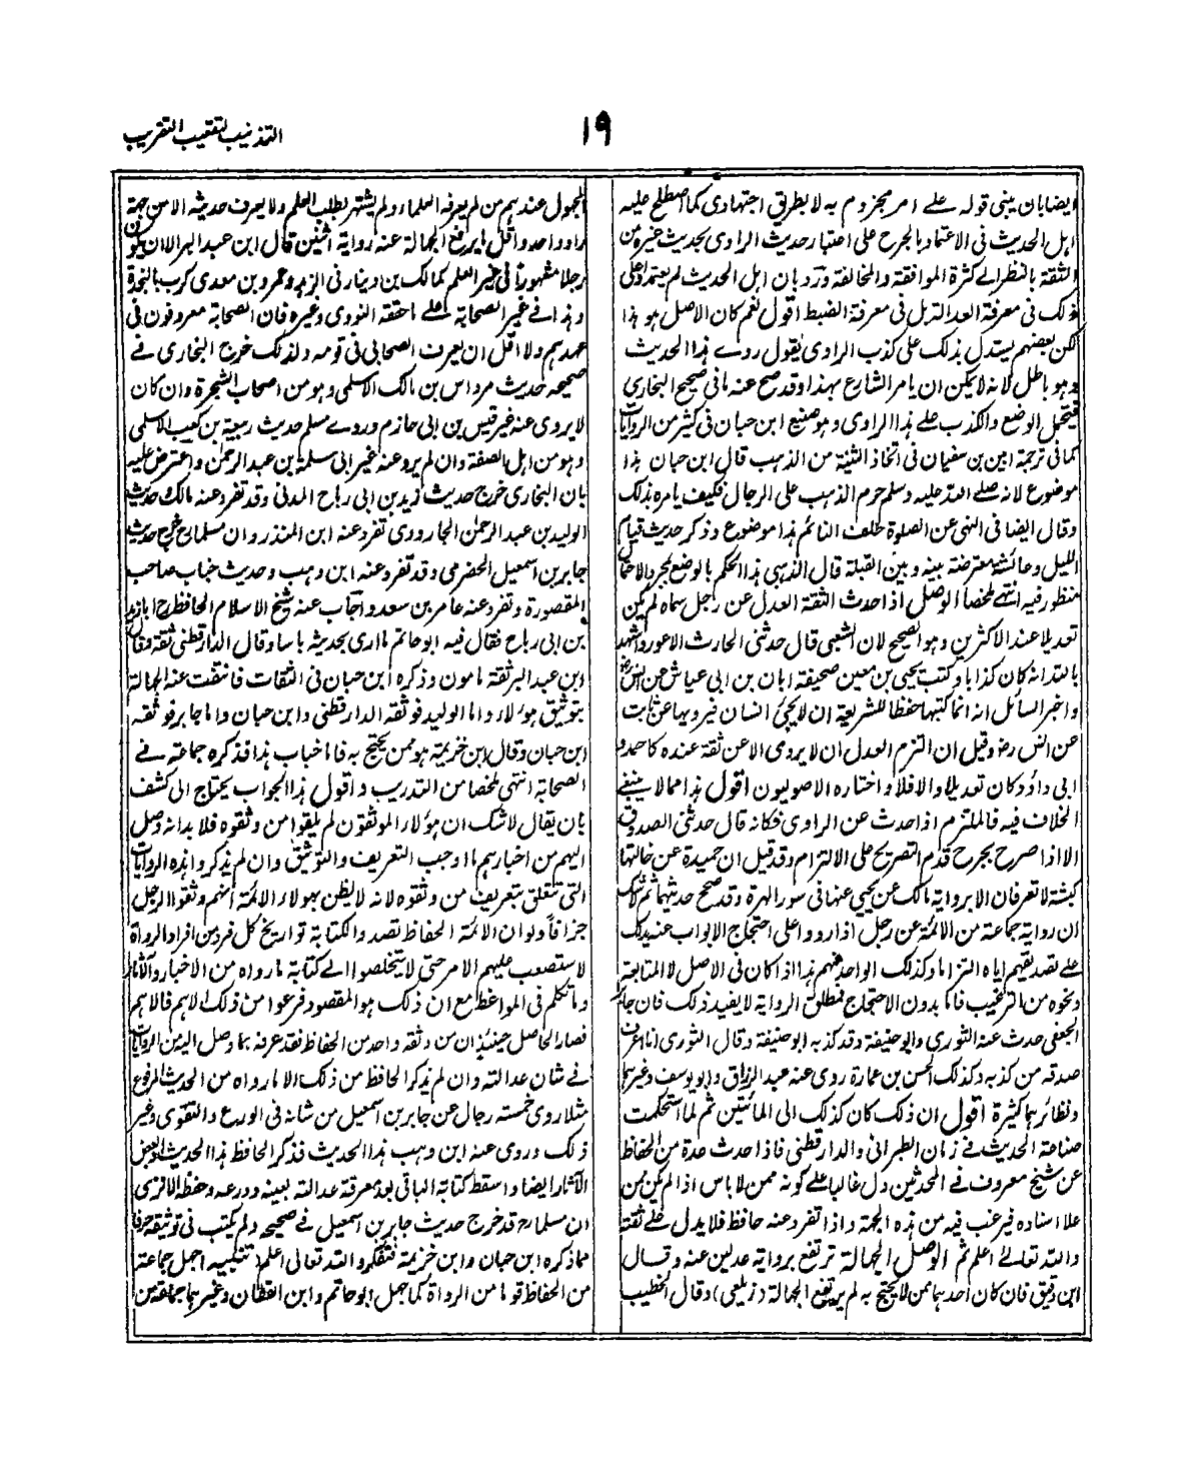 التذنيب لتعقيب التقريب
١٩
ايضا بان يبنى قوله على امر مجزوم به لا بطريق اجتهادى كما اصطلح عليه
اهل الحديث فى الاعتماد بالجرح على اعتبار حديث الراوى بحديث غيره من
الثقة بالنظر الى كثرة الموافقة والمخالفة ورد بان اهل الحديث لم يعتمدوا على
ذلك فى معرفة العدالة بل فى معرفة الضبط اقول نعم كان الاصل هو هذا
لكن بعضهم يستدل بذلك على كذب الراوى يقول روى هذا الحديث
وهو باطل لانه لا يمكن ان يامر الشارع بهذا وقد صح عنه ما فى صحيح البخارى
فيتحمل الوضع والكذب على هذا الراوى وهو صنيع ابن حبان فى كثير من الروايات
كما فى ترجمة ابين بن سفيان فى اتخاذ الثنية من الذهب قال ابن حبان هذا
موضوع لانه صلى الله عليه وسلم حرم الذهب على الرجال فكيف يامره بذلك
وقال ايضا فى النهى عن الصلوة خلف النائم هذا موضوع وذكر حديث قيام
الليل وعائشة معترضة بينه وبين القبلة قال الذهبى هذا الحكم بالوضع بمجرد الاحتمال
منظور فيه انتهى ملخصا الوصل اذا حدث الثقة العدل عن رجل سماه لم يكن
تعديلا عند الاكثرين وهو الصحيح لان الشعبى قال حدثنى الحارث الاعور واشهد
بالله انه كان كذابا وكتب يحيى بن معين صحيفة ابان بن ابى عياش عن انس
واخبر السائل انه انما كتبها حفظا للشريعة ان لا يجئ انسان فيرويها عن ثابت
عن انس رض وقيل ان التزم العدل ان لا يروى الا عن ثقة عنده كاحمد و
ابى داؤد كان تعديلا والا فلا واختاره الاصوليون اقول هذا مما لا ينبغى
الخلاف فيه فالملتزم اذا حدث عن الراوى فكانه قال حدثنى الصدوق
الا اذا صرح بجرح قدم التصريح على الالتزام وقد قيل ان حميدة عن خالتها
كبشة لا تعرفان الا برواية مالك عن يحيى عنها فى سور الهرة وقد صح حديثها ثم لا شك
ان رواية جماعة من الائمة عن رجل اذا رووا على احتجاج الابواب عند يدل
على تصديقهم اياه التزاما وكذلك الواحد منهم هذا اذا كان فى الاصل لا المتابعة
ونحوه من الترغيب فاما بدون الاحتجاج فمطلق الرواية لا يفيد ذلك فان جابر
الجعفى حدث عنه الثورى وابو حنيفة وقد كذبه ابو حنيفة وقال الثورى انا اعرف
صدقه من كذبه وكذلك الحسن بن عمارة روى عنه عبد الرزاق وابو يوسف وغيرهما
ونظائرها كثيرة اقول ان ذلك كان كذلك الى المائتين ثم لما استحكمت
صناعة الحديث فى زمان الطبرانى والدارقطنى فاذا حدث عدة من الحفاظ
عن شيخ معروف فى المحدثين دل غالبا على كونه ممن لا باس اذا لم يكن ممن
علا اسناده فيرغب فيه من هذه الجهة واذا تفرد عنه حافظ فلا يدل على ثقة
والله تعالى اعلم ثم الوصل الجهالة ترتفع برواية عدلين عنه وقال
ابن دقيق فان كان احدهما ممن لا يحتج به لم يرتفع الجهالة (زيلعى) وقال الخطيب
المجهول عندهم من لم يعرفه العلماء ولم يشتهر بطلب العلم ولا يعرف حديثه الا من جهة
راو واحد واقل ما يرفع الجهالة عنه رواية اثنين قال ابن عبد البر الا ان يكون
رجلا مشهورا فى غير العلم كمالك بن دينار فى الزهد وعمرو بن معدى كرب بالنجدة
وهذا فى غير الصحابة على ما حققه النووى وغيره فان الصحابة معروفون فى
عهدهم ولا اقل ان يعرف الصحابى فى قومه ولذلك خرج البخارى فى
صحيحه حديث مرداس بن مالك الاسلمى وهو من اصحاب الشجرة وان كان
لا يروى عنه غير قيس بن ابى حازم وروى مسلم حديث ربيعة بن كعب الاسلمى
وهو من اهل الصفة وان لم يرو عنه غير ابى سلمة بن عبد الرحمن واعترض عليه
بان البخارى خرج حديث زيد بن ابى رباح المدنى وقد تفرد عنه مالك وحديث
الوليد بن عبد الرحمن الجارودى تفرد عنه ابن المنذر وان مسلما خرج حديث
جابر بن اسمعيل الحضرمى وقد تفرد عنه ابن وهب وحديث خباب صاحب
المقصورة وتفرد عنه عامر بن سعد واجاب عنه شيخ الاسلام الحافظ رح اما زيد
بن ابى رباح فقال فيه ابو حاتم ما ارى بحديثه باسا وقال الدارقطنى ثقة وقال
ابن عبد البر ثقة مامون وذكره ابن حبان فى الثقات فانتفت عنه الجهالة
بتوثيق هؤلاء واما الوليد فوثقه الدارقطنى وابن حبان واما جابر فوثقه
ابن حبان وقال ابن خزيمة هو ممن يحتج به فاما خباب هذا فذكره جماعة فى
الصحابة انتهى ملخصا من التدريب واقول هذا الجواب يحتاج الى كشف
بان يقال لا شك ان هؤلاء الموثقون لم يلقوا من وثقوه فلا بد انه وصل
اليهم من اخبارهم ما اوجب التعريف والتوثيق وان لم يذكروا هذه الروايات
التى تتعلق بتعريف من وثقوه لانه لا يظن بهولاء الائمة انهم وثقوا الرجل
جزافا ولو ان الائمة الحفاظ تصدوا لكتابة تواريخ كل فرد من افراد الرواة
لاستصعب عليهم الامر حتى لا يتخلصوا الى كتابة ما رواه من الاخبار والاثار
وما تكلم فى المواعظ مع ان ذلك هو المقصود ففرغوا من ذلك الاهم فالاهم
فصار الحاصل حينئذ ان من وثقه واحد من الحفاظ فقد عرفه بما وصل اليه من الروايات
فى شان عدالته وان لم يذكر الحافظ من ذلك الا ما رواه من الحديث المرفوع
مثلا روى خمسة رجال عن جابر بن اسمعيل من شانه فى الورع والتقوى وغير
ذلك وروى عنه ابن وهب هذا الحديث فذكر الحافظ هذا الحديث او بعض
الآثار ايضا واسقط كتابة الباقى بعد معرفة عدالته بعينه وورعه وحفظه الا ترى
ان مسلما رح قد خرج حديث جابر بن اسمعيل فى صحيحه ولم يكتب فى توثيقه حرفا
مما ذكره ابن حبان وابن خزيمة فتفكر والله تعالى اعلم تنبيه اجهل جماعة
من الحفاظ قوما من الرواة كما جهل ابو حاتم وابن القطان وغيرهما جماعة من